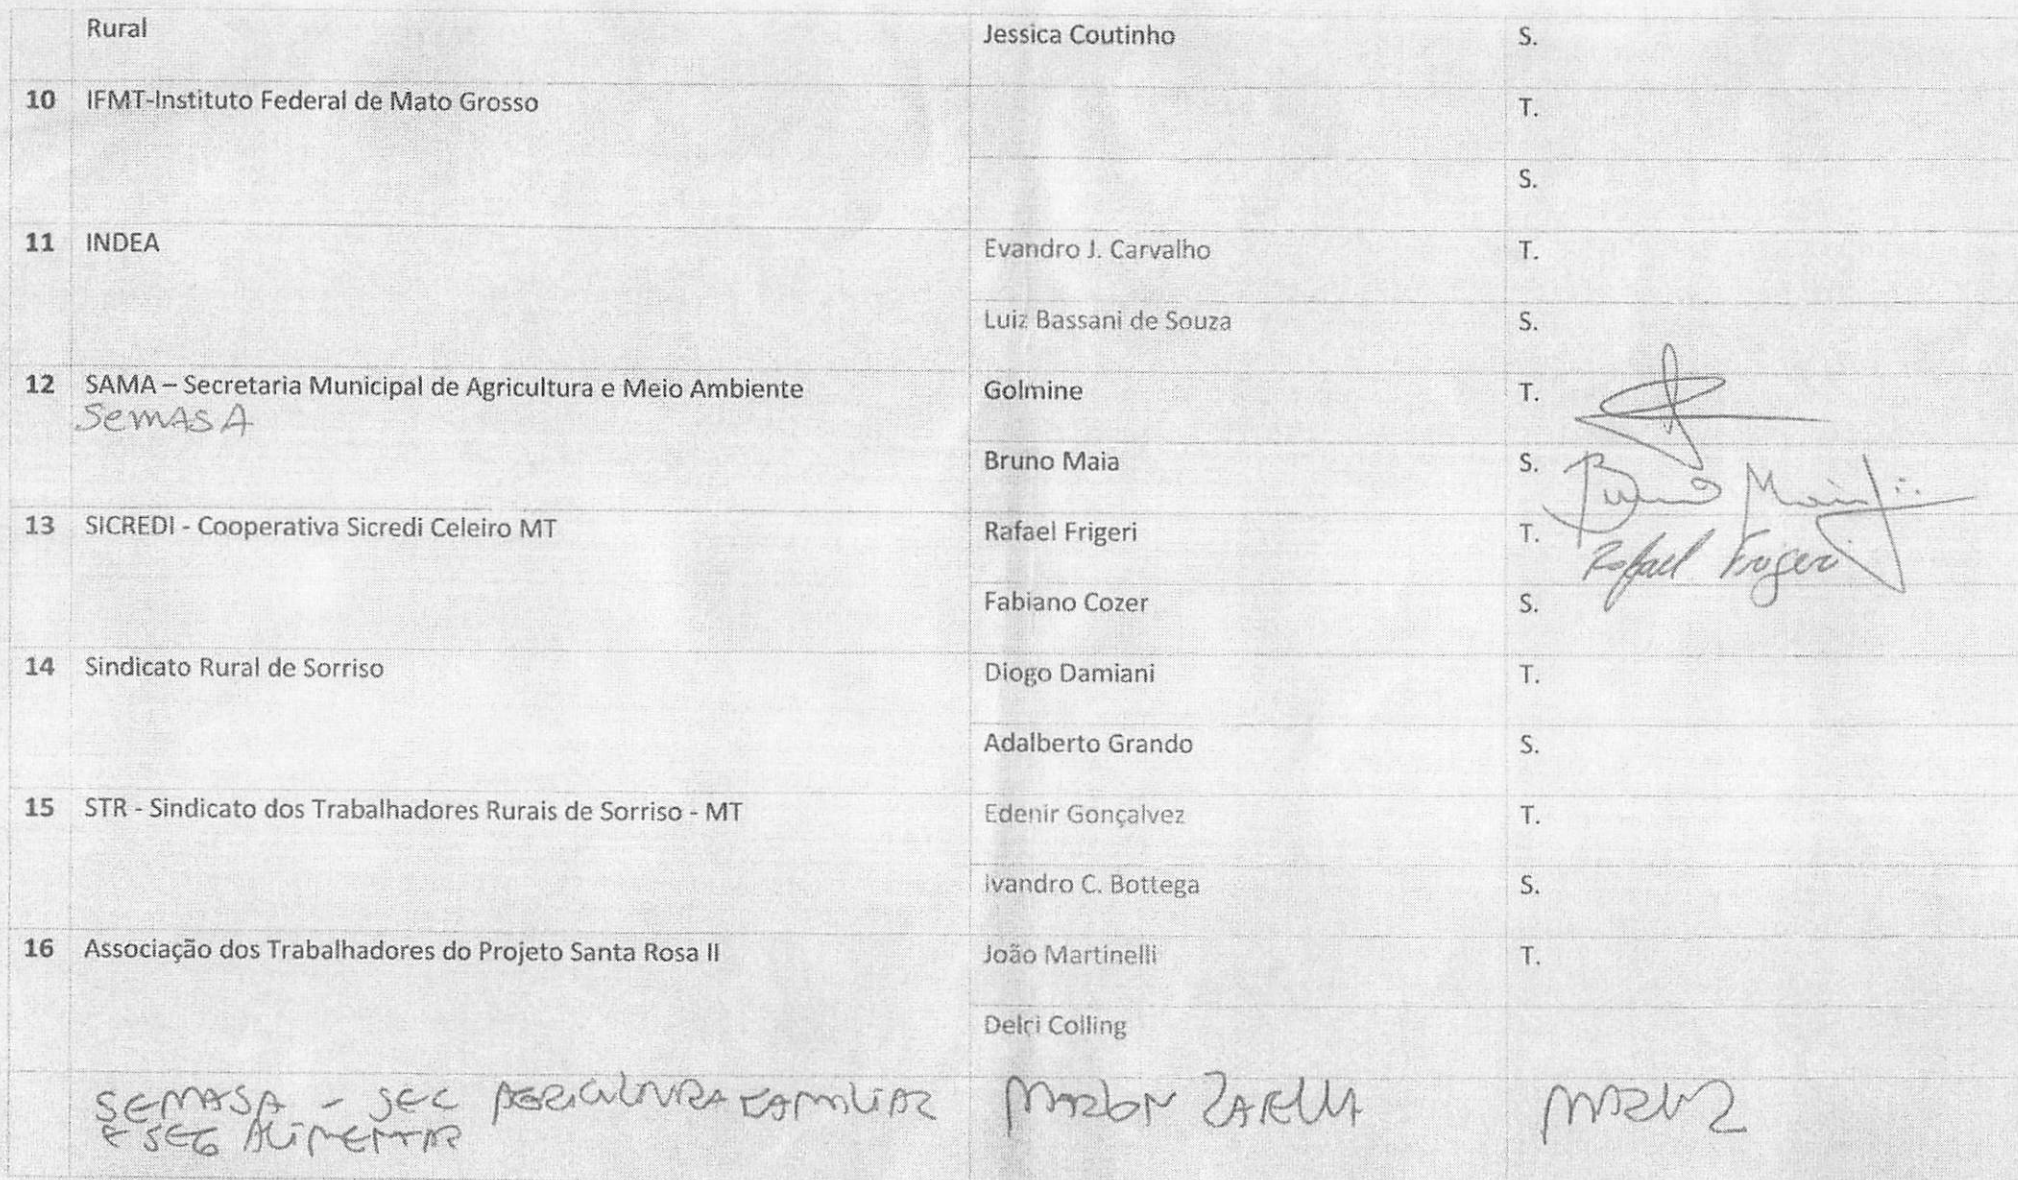 Rural Jessica Coutinho S.
10 IFMT-Instituto Federal de Mato Grosso T.
S.
11 INDEA Evandro J. Carvalho T.
Luiz Bassani de Souza S.
12 SAMA – Secretaria Municipal de Agricultura e Meio Ambiente Golmine T.
SEMASA
Bruno Maia S. Bruno Maia
13 SICREDI - Cooperativa Sicredi Celeiro MT Rafael Frigeri T. Rafael Frigeri
Fabiano Cozer S.
14 Sindicato Rural de Sorriso Diogo Damiani T.
Adalberto Grando S.
15 STR - Sindicato dos Trabalhadores Rurais de Sorriso - MT Edenir Gonçalvez T.
Ivandro C. Bottega S.
16 Associação dos Trabalhadores do Projeto Santa Rosa II João Martinelli T.
Delci Colling
SEMASA - SEC AGRICULTURA FAMILIAR MARLON ZARELLA
E SEG ALIMENTAR